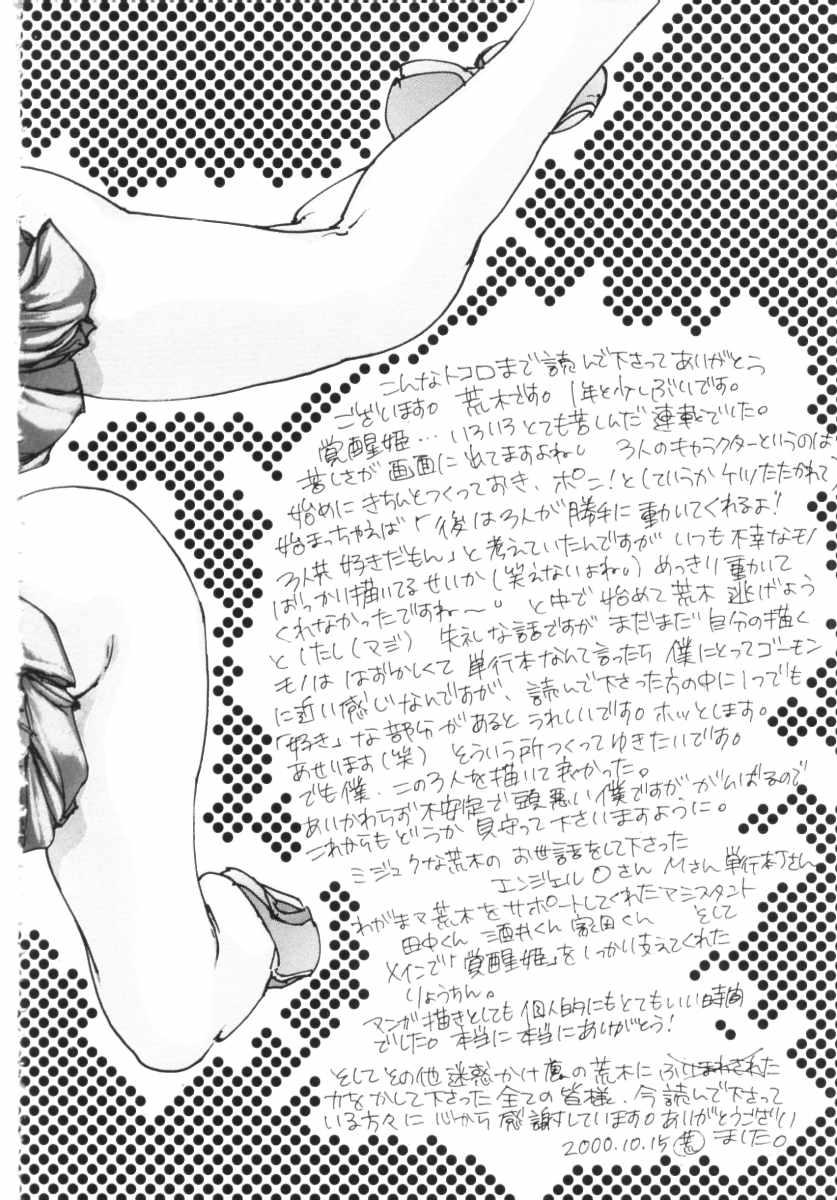 こんなトコロまで読んで下さってありがとう
ございます。荒木です。1年と少しぶりです。
覚醒姫…いろいろとても苦しんだ連載でした。
苦しさが画面に出てますよね。3人のキャラクターというのは
始めにきちんとつくっておき、ポン!としていうかケツたたかれて
始まっちゃえば「後は3人が勝手に動いてくれるよ!
3人共好きだもん」と考えていたんですがいつも不幸なモノ
ばっかり描いてるせいか(笑えないよね。)めっきり動いて
くれなかったですね〜。と中で始めて荒木逃げよう
としたし(マジ) 失礼な話ですがまだまだ自分の描く
モノははずかしくて単行本なんて言ったら僕にとってゴーモン
に近い感じなんですが、読んで下さった方の中に1つでも
「好き」な部分があるとうれしいです。ホッとします。
あせります(笑) そういう所つくってゆきたいです。
でも僕、この3人を描いて良かった。
あいかわらず不安定で頭悪い僕ですががんばるので
これからもどうか見守って下さいますように。
ミジュクな荒木のお世話をして下さった
エンジェルOさん Mさん 単行本Tさん
わがママ荒木をサポートしてくれたアシスタント
田中くん 酒井くん くん そして
メインで「覚醒姫」をしっかり支えてくれた
りょうちん。
マンガ描きとしても個人的にもとてもいい時間
でした。本当に本当にありがとう!
そしてその他迷惑かけ の荒木に
力をかして下さった全ての皆様、今読んで下さって
いる方々に心から感謝しています。ありがとうござい
2000.10.15 荒 ました。